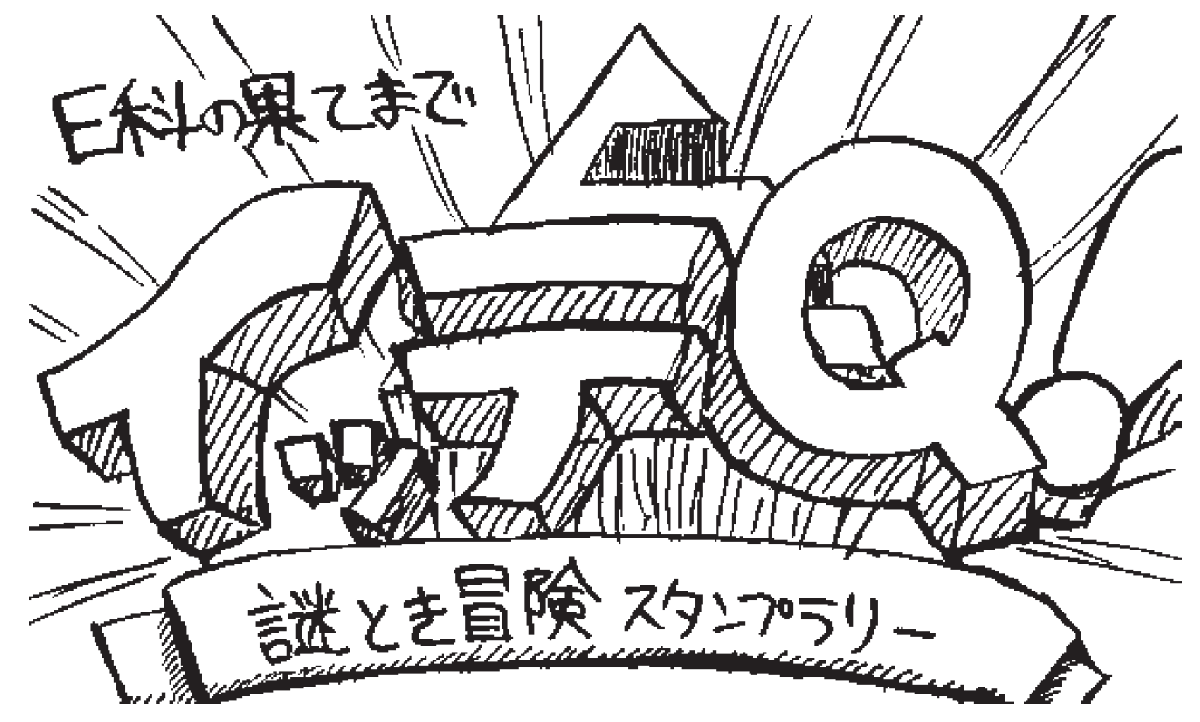 E科の果てまで
イッテQ!
謎とき冒険スタンプラリー